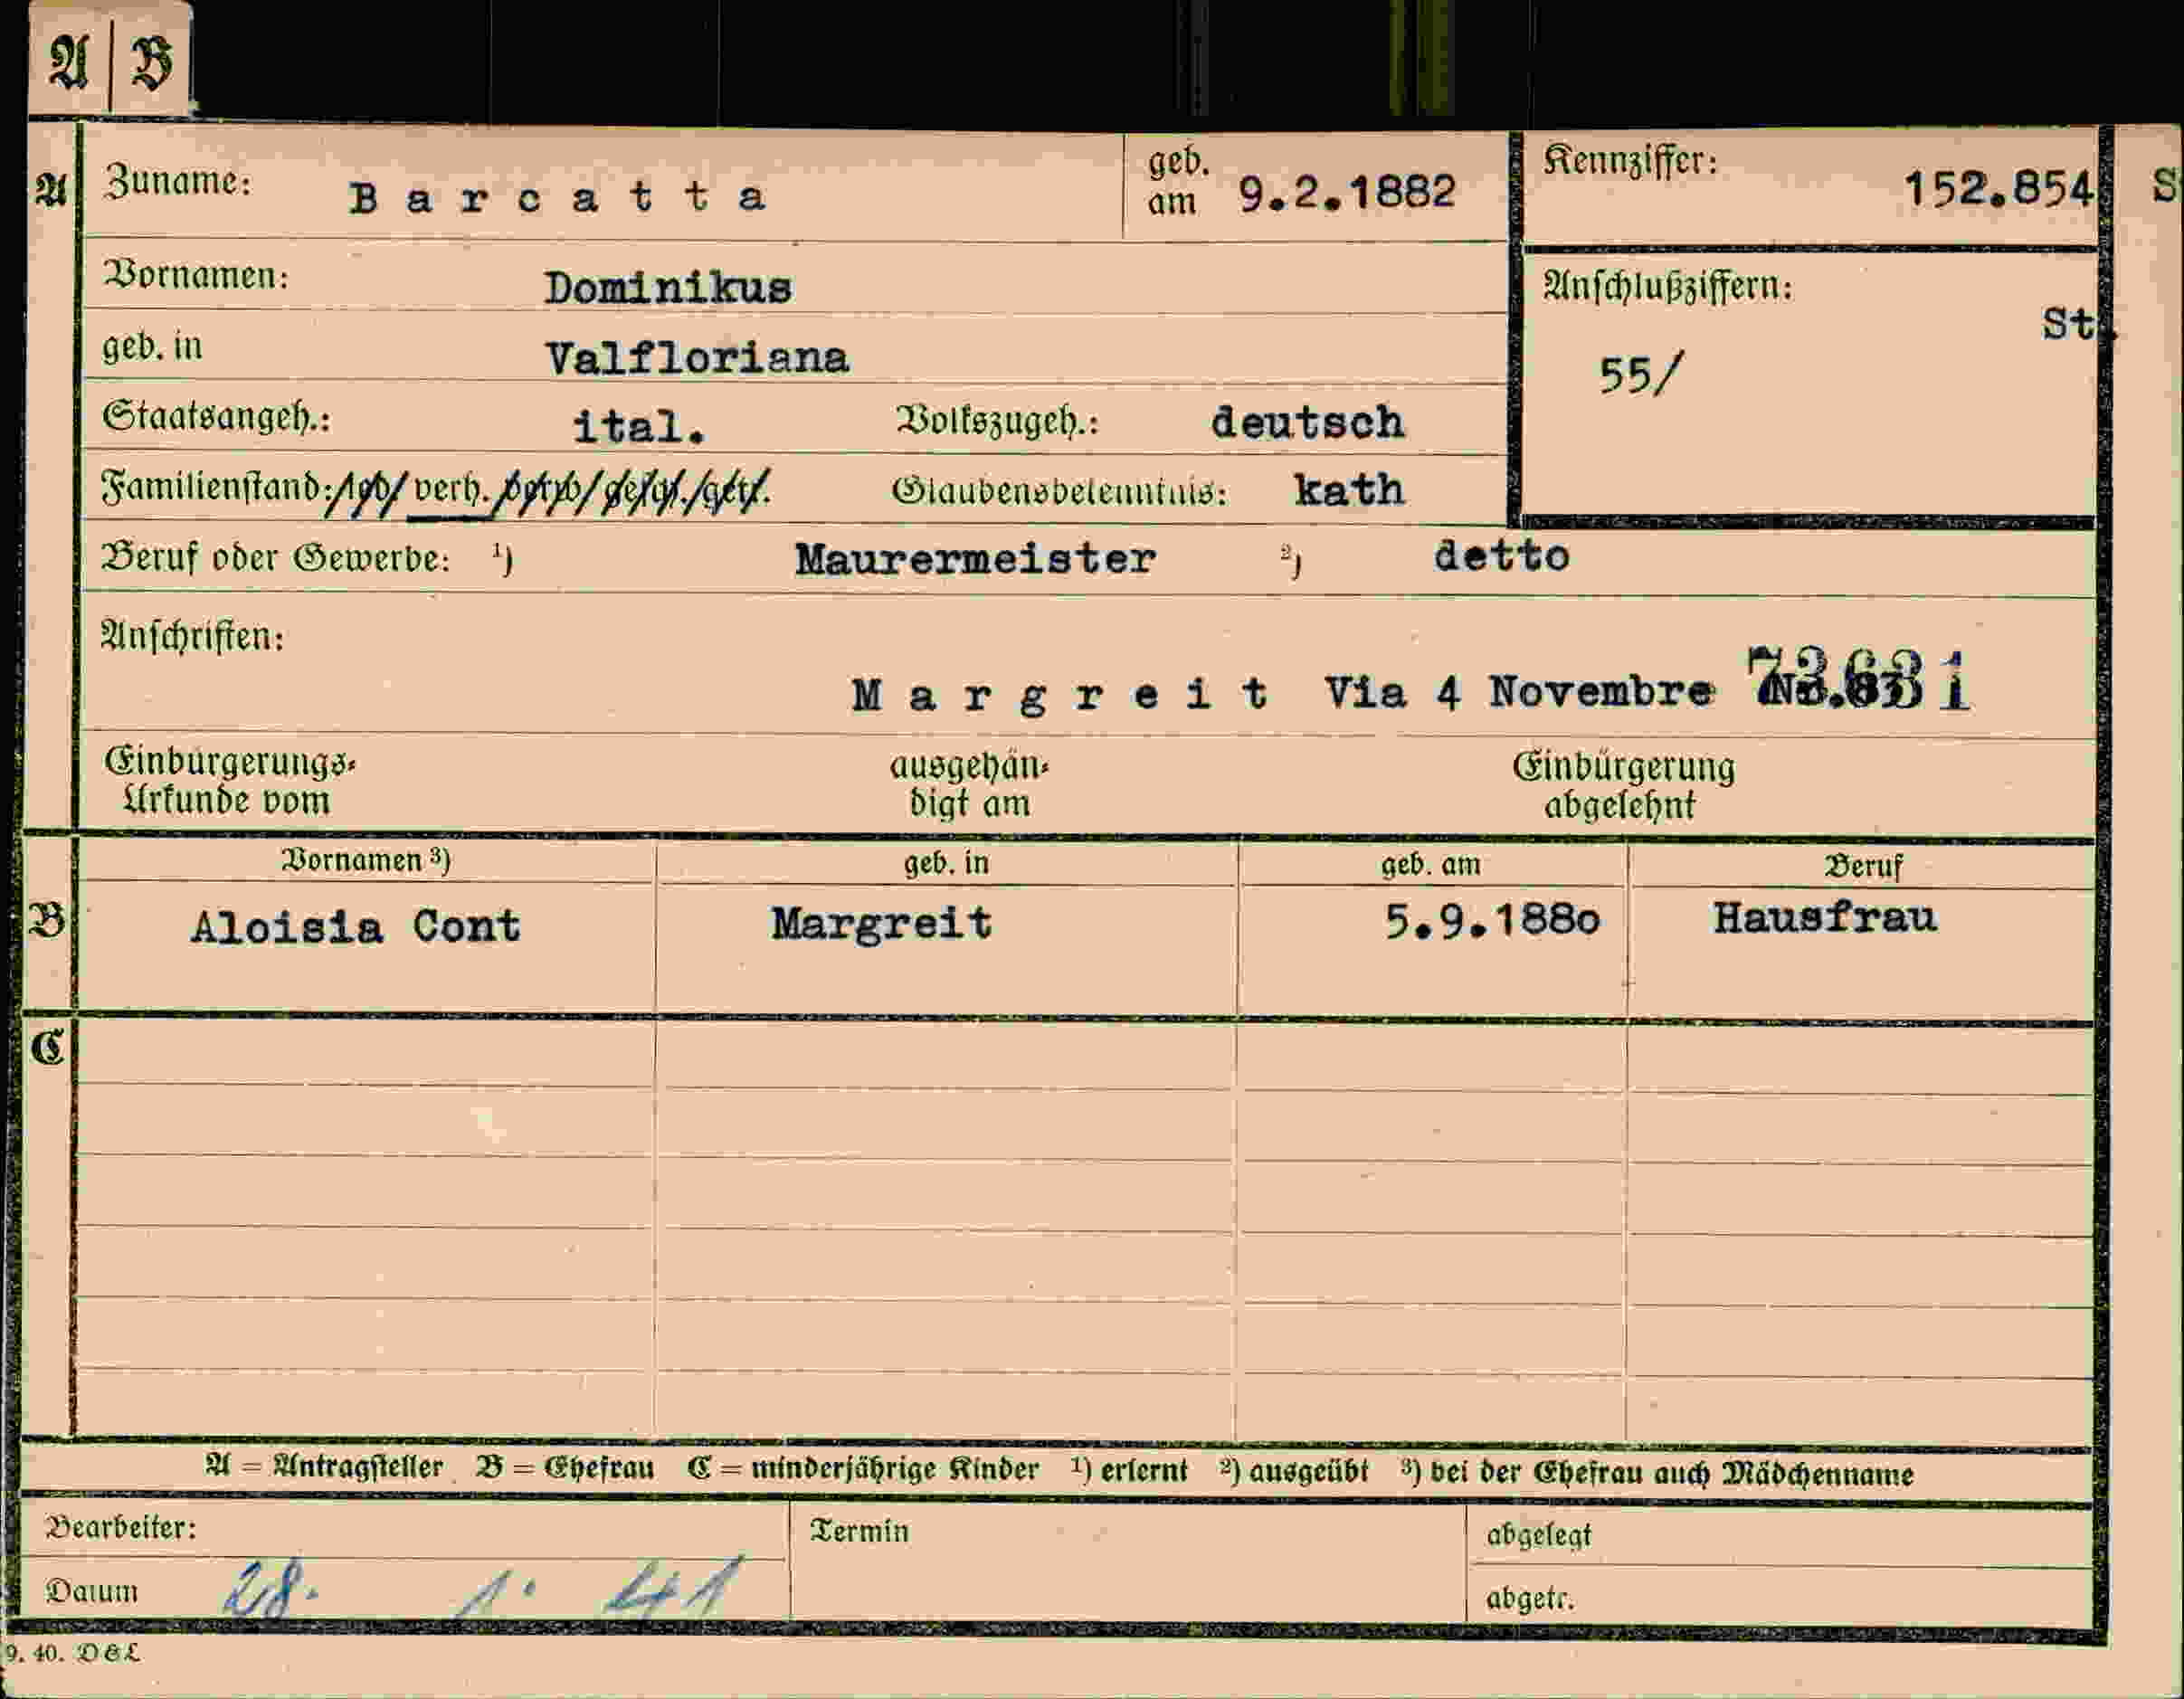 A | B
A Zuname: Barcatta geb. am 9.2.1882 Kennziffer: 152.854 S
Vornamen: Dominikus Anschlußziffern: St.
geb. in Valfloriana 55/
Staatsangeh.: ital. Volkszugeh.: deutsch
Familienstand: led/ verh. /verw/ gesch./getr. Glaubensbekenntnis: kath
Beruf oder Gewerbe: ¹) Maurermeister ²) detto
Anschriften:
Margreit Via 4 Novembre
Einbürgerungs-
Urkunde vom
ausgehän-
digt am
Einbürgerung
abgelehnt
Vornamen ³) geb. in geb. am Beruf
B Aloisia Cont Margreit 5.9.188o Hausfrau
C
A = Antragsteller B = Ehefrau C = minderjährige Kinder ¹) erlernt ²) ausgeübt ³) bei der Ehefrau auch Mädchenname
Bearbeiter: Termin abgelegt
Datum 28. 1. 41 abgetr.
9. 40. D & L